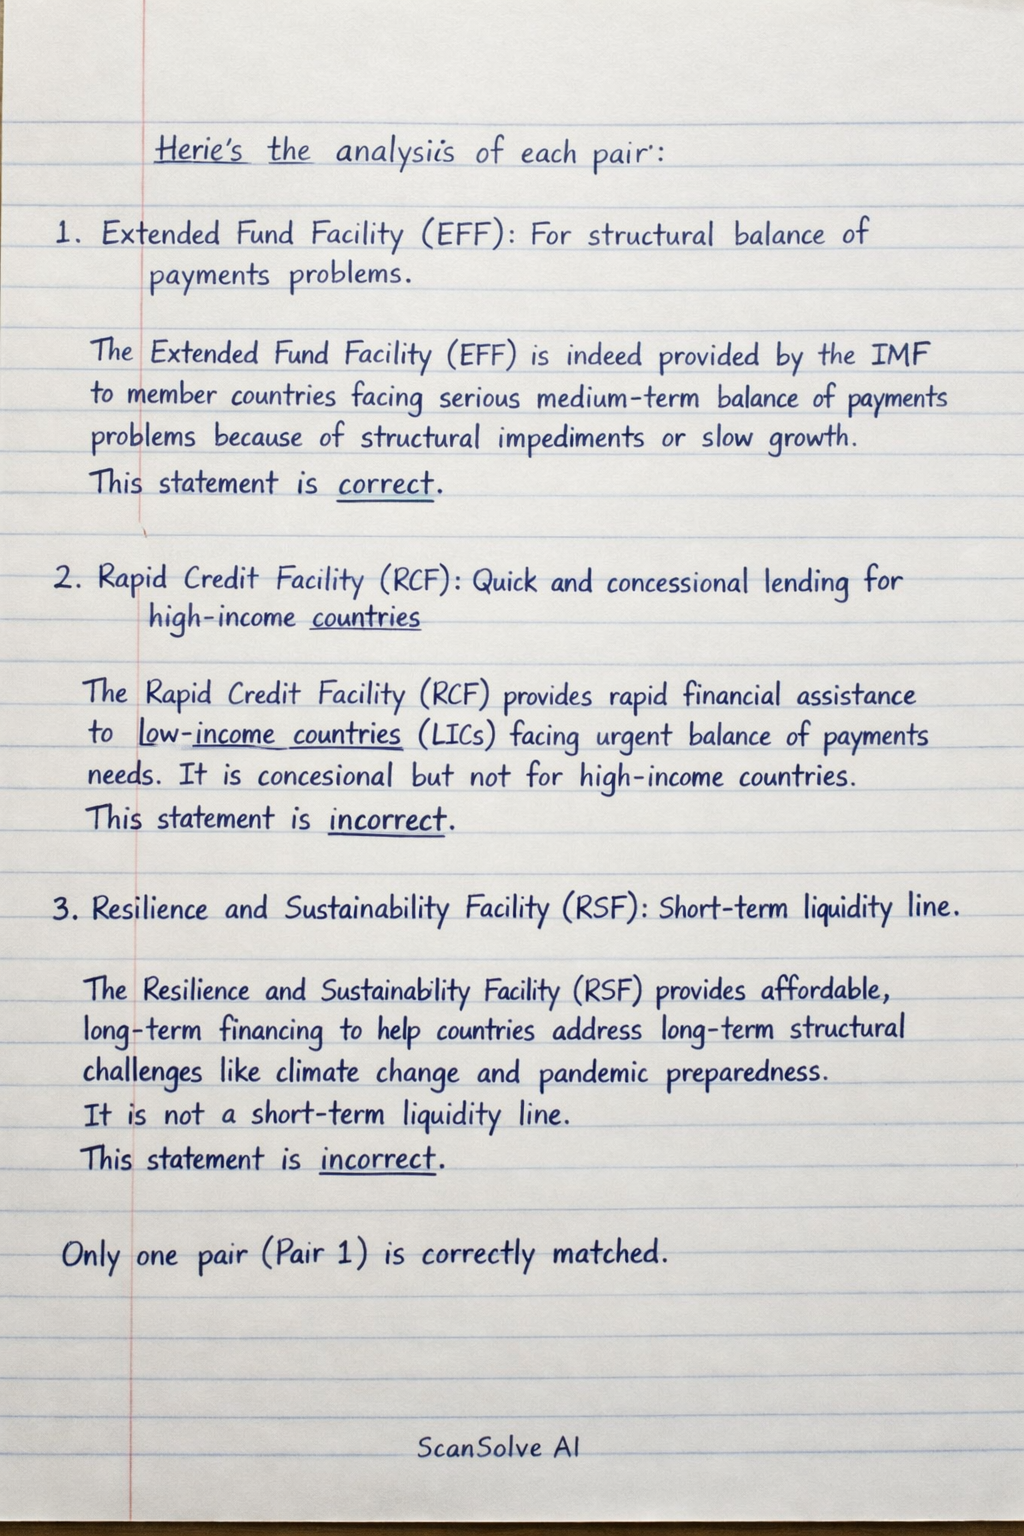 Herie's the analysiis of each pair:
1. Extended Fund Facility (EFF): For structural balance of
payments problems.
The Extended Fund Facility (EFF) is indeed provided by the IMF
to member countries facing serious medium-term balance of payments
problems because of structural impediments or slow growth.
This statement is correct.
2. Rapid Credit Facility (RCF): Quick and concessional lending for
high-income countries
The Rapid Credit Facility (RCF) provides rapid financial assistance
to low-income countries (LICs) facing urgent balance of payments
needs. It is concesional but not for high-income countries.
This statement is incorrect.
3. Resilience and Sustainability Facility (RSF): Short-term liquidity line.
The Resilience and Sustainability Facility (RSF) provides affordable,
long-term financing to help countries address long-term structural
challenges like climate change and pandemic preparedness.
It is not a short-term liquidity line.
This statement is incorrect.
Only one pair (Pair 1) is correctly matched.
ScanSolve AI